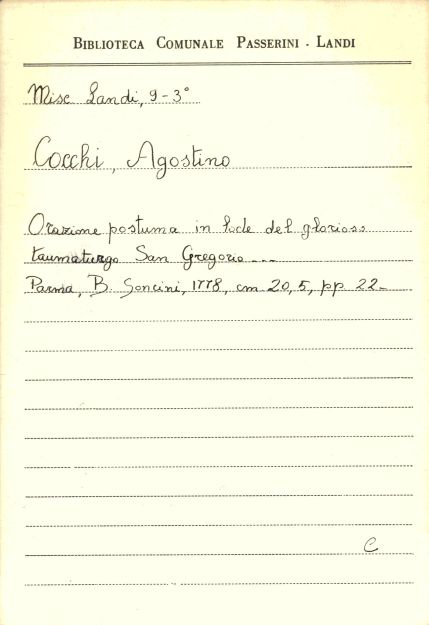 BIBLIOTECA COMUNALE PASSERINI - LANDI
Misc Landi, 9-3°
Cocchi, Agostino
Orazione postuma in lode del glorioso
taumaturgo San Gregorio ...
Parma, B. Soncini, 1778, cm 20,5, pp 22-
C